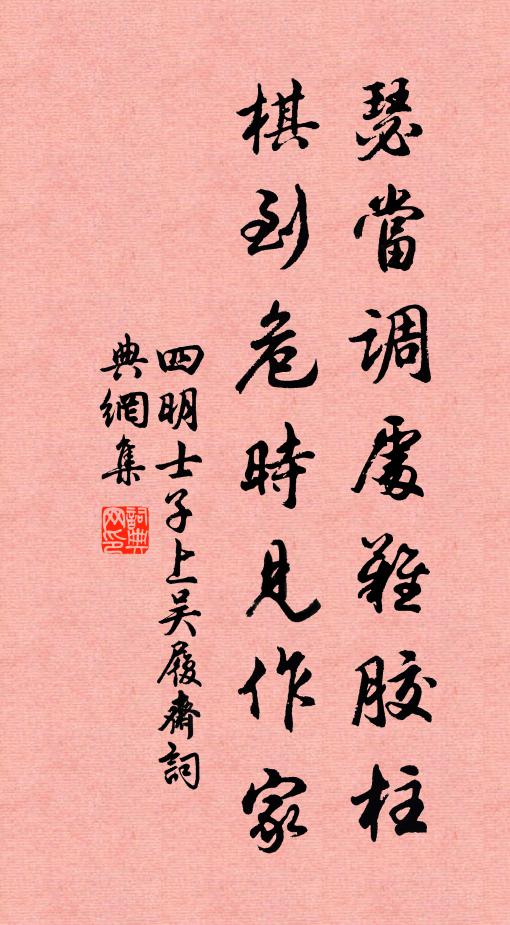 瑟當調處難膠柱
棋到危時見作家
四明士子上吳履齋詞
典網集
詞典網印